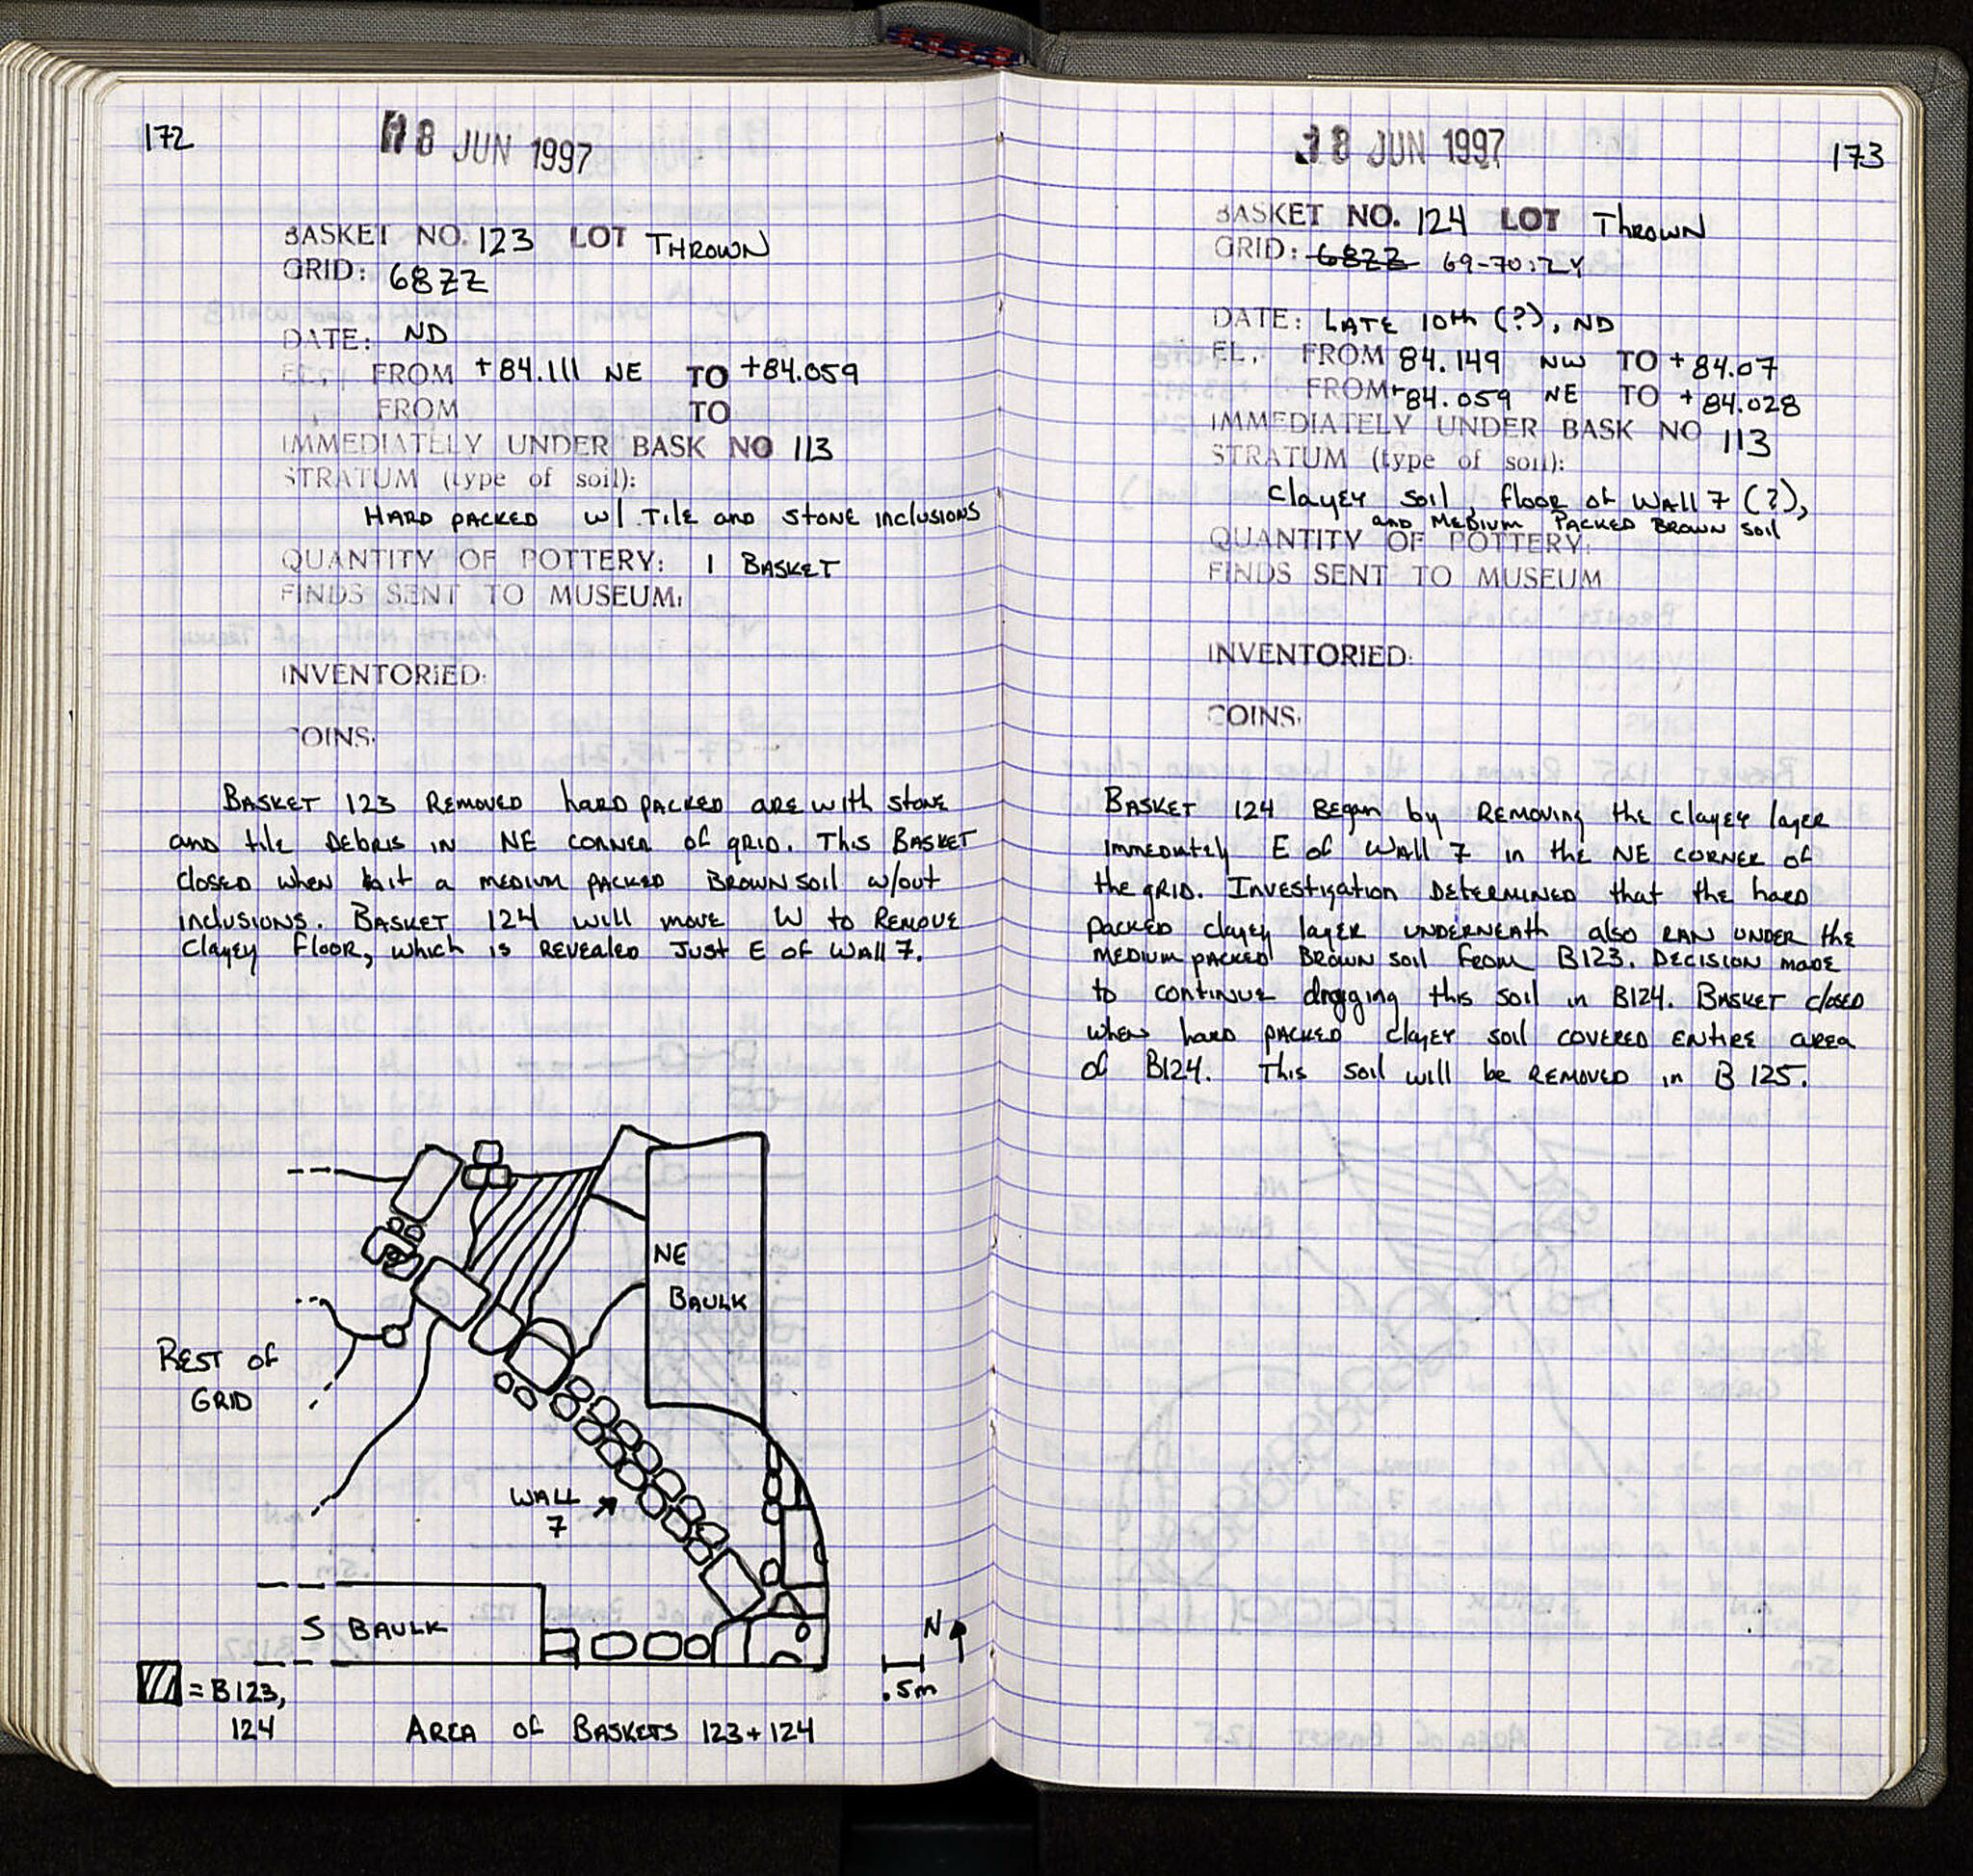 172
18 JUN 1997
BASKET NO. 123 LOT THROWN
GRID: 68ZZ
DATE: ND
EL. FROM +84.111 NE TO +84.059
FROM TO
IMMEDIATELY UNDER BASK NO 113
STRATUM (type of soil):
HARD PACKED w/ TILE AND STONE INCLUSIONS
QUANTITY OF POTTERY: 1 BASKET
FINDS SENT TO MUSEUM:
INVENTORIED:
COINS:
BASKET 123 REMOVED hARD PACKED ARE with STONE
AND tile DEBRIS IN NE CORNER OF gRID. This BASKET
closed when hit a MEDIUM PACKED BROWN SOIL w/out
inclusions. BASKET 124 will move W to REMOVE
Clayey Floor, which is REVEALED Just E of Wall 7.
NE
BAULK
REST of
GRID
WALL
7
S BAULK
N
.5m
= B123,
124
AREA of BASKETS 123+124
18 JUN 1997
173
BASKET NO. 124 LOT Thrown
GRID: 68ZZ 69-70:ZY
DATE: LATE 10th (?), ND
EL. FROM 84.149 NW TO +84.07
FROM +84.059 NE TO +84.028
IMMEDIATELY UNDER BASK NO 113
STRATUM (type of soil):
Clayey soil, floor of Wall 7 (?),
and MEDIUM PACKED BROWN soil
QUANTITY OF POTTERY:
FINDS SENT TO MUSEUM
INVENTORIED:
COINS:
BASKET 124 Began by REMOVING the clayey layer
immediately E of Wall 7 in the NE CORNER of
the gRID. Investigation DETERMINED that the hard
packed clayey layer UNDERNEATH also RAN UNDER the
MEDIUM packed BROWN soil from B123. DECISION made
to continue digging this soil in B124. BASKET closed
when hard packed clayey soil COVERED ENTIRE area
of B124. This soil will be REMOVED in B 125.